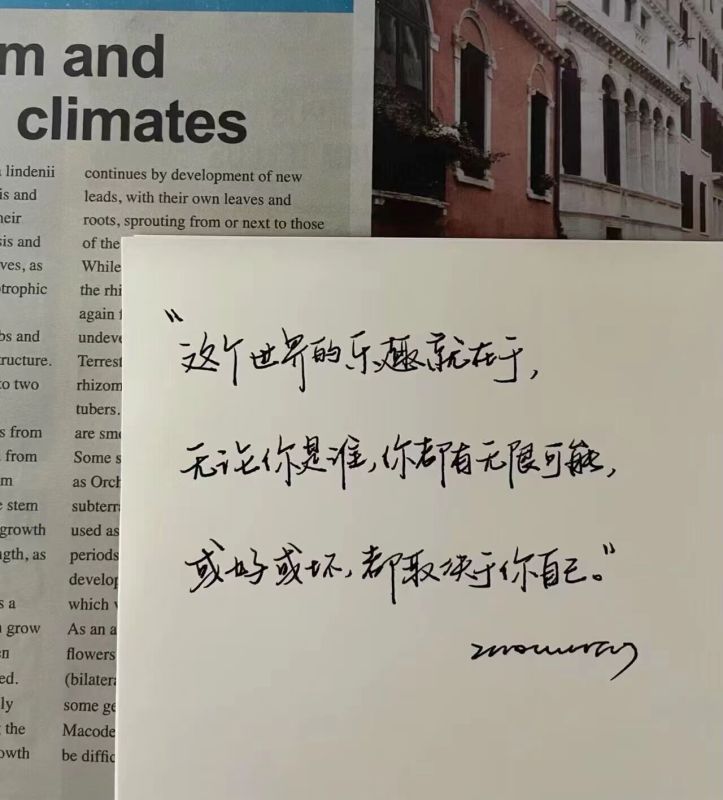 m and
climates
lindenii
is and
heir
sis and
ves, as
trophic
bs and
ructure.
to two
s from
from
m
stem
growth
gth, as
s a
grow
en
ed.
ly
the
owth
continues by development of new
leads, with their own leaves and
roots, sprouting from or next to those
of the
While
the rhi
again
undeve
Terrest
rhizom
tubers.
are sm
Some s
as Orch
subterr
used as
periods
develop
which
As an a
flowers
(bilater
some ge
Macode
be diffic
"这个世界的乐趣就在于,
无论你是谁,你都有无限可能,
或好或坏,都取决于你自己。"